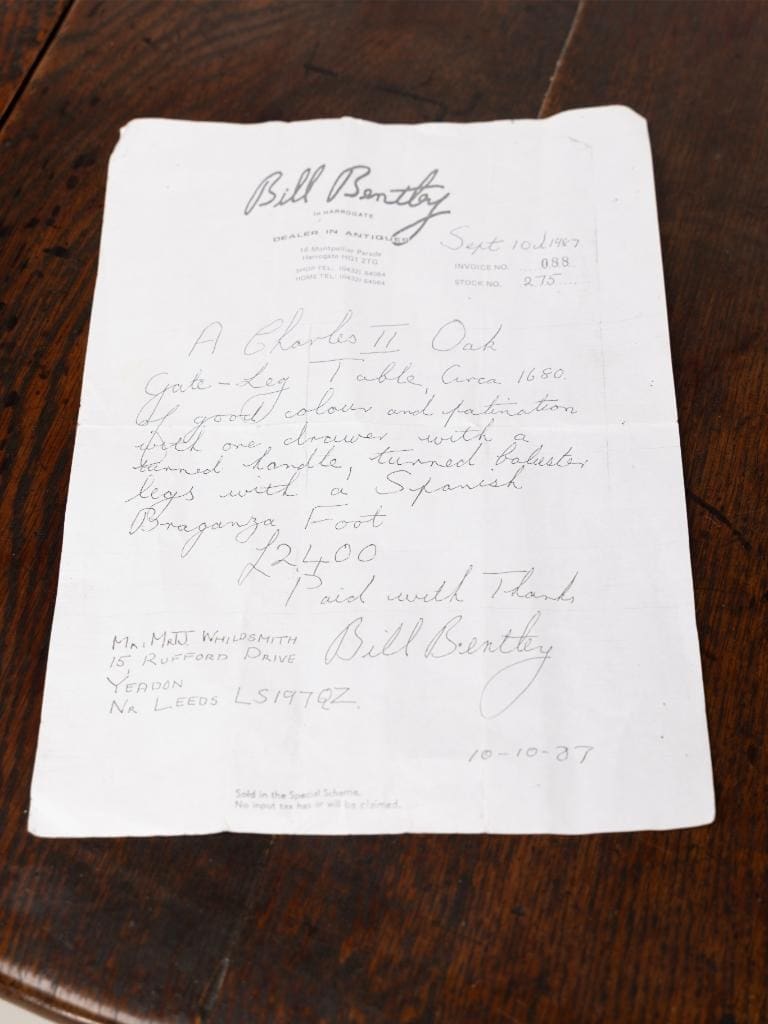 Bill Bentley
IN HARROGATE
DEALER IN ANTIQUES
16 Montpellier Parade
Harrogate HG1 2TG
SHOP TEL: (0423) 64084
HOME TEL: (0423) 64564
Sept 10th 1987
INVOICE NO. 088
STOCK NO. 275
A Charles II Oak
Gate-Leg Table, Circa 1680.
Of good colour and patination
with one drawer with a
turned handle, turned baluster
legs with a Spanish
Braganza Foot
£2400
Paid with Thanks
Bill Bentley
MR, MRS WHILDSMITH
15, RUFFORD DRIVE
YEADON
NR LEEDS LS19 7QZ.
10-10-87
Sold in the Special Scheme.
No input tax has or will be claimed.